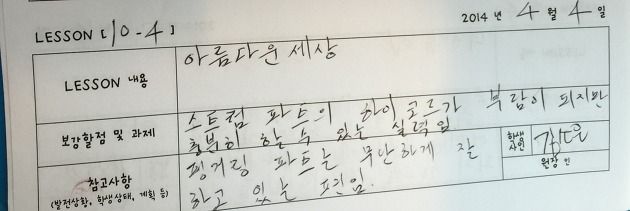 2014 년 4 월 4 일
LESSON [ 10-4 ]
LESSON 내용
아름다운 세상
스트럼 파트의 하이코드가 부담이 되지만
보강할점 및 과제
충분히 할 수 있는 실력임
학생
사인
핑거링 파트는 무난하게 잘
원장 인
참고사항
(발전상황, 학생상태, 계획 등)
하고 있는 편임.